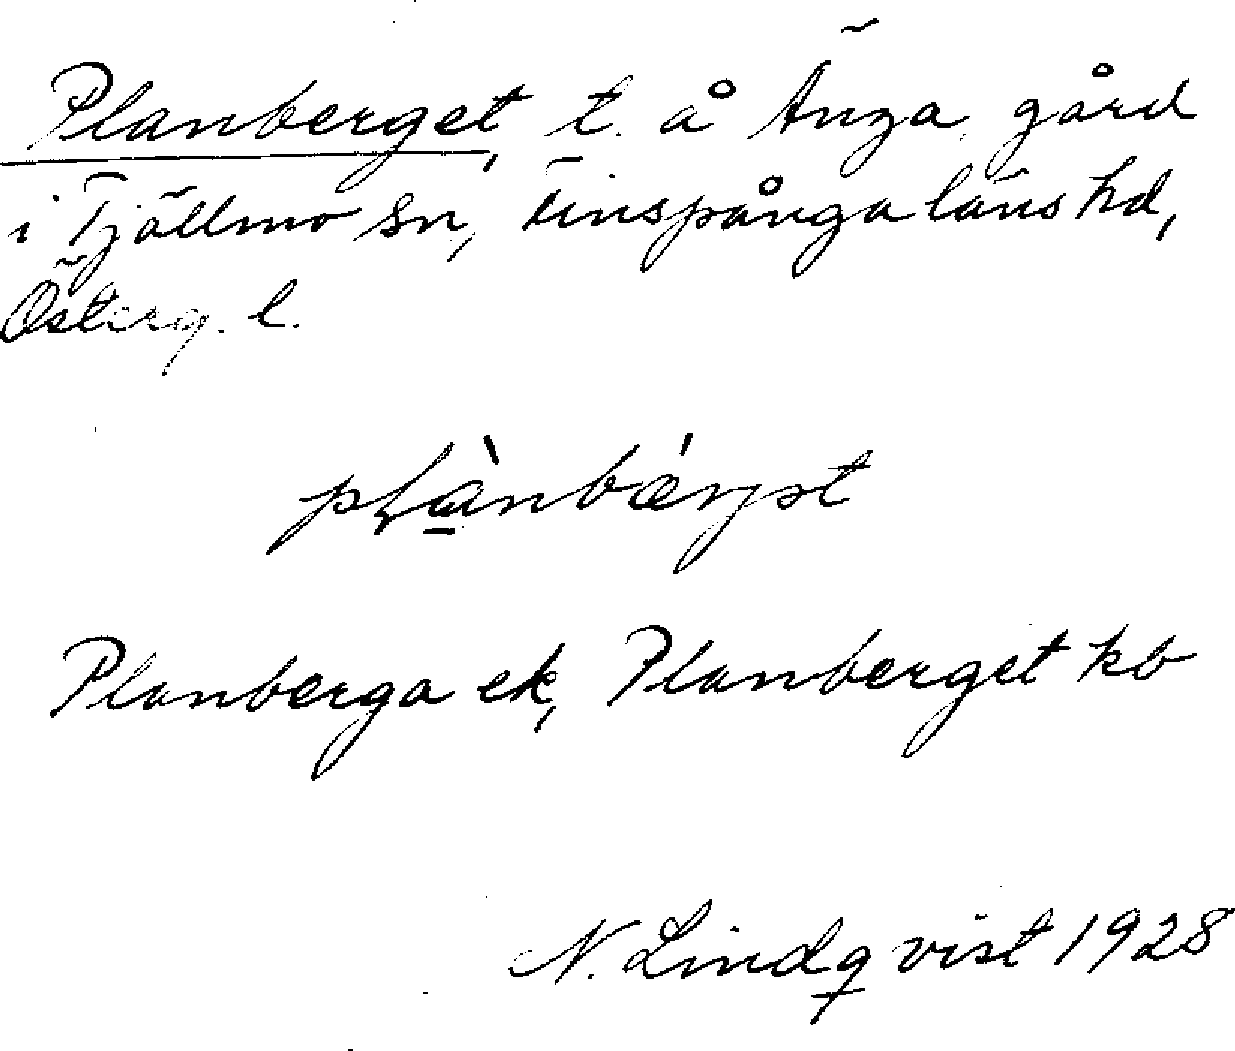 Planberget, t. å Änga gård
i Tjällmo sn, Finspånga läns hd,
Österg. l.
Planberga ek, Planberget kb
N. Lindqvist 1928